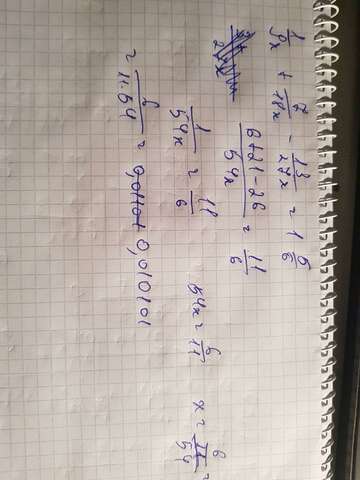 1/9x + 7/18x - 13/27x = 1 5/6
(6+21-26)/54x = 11/6
1/54x = 11/6 54x = 6/11 x = (6/11)/54 =
= 6/(11·54) = 0,010101